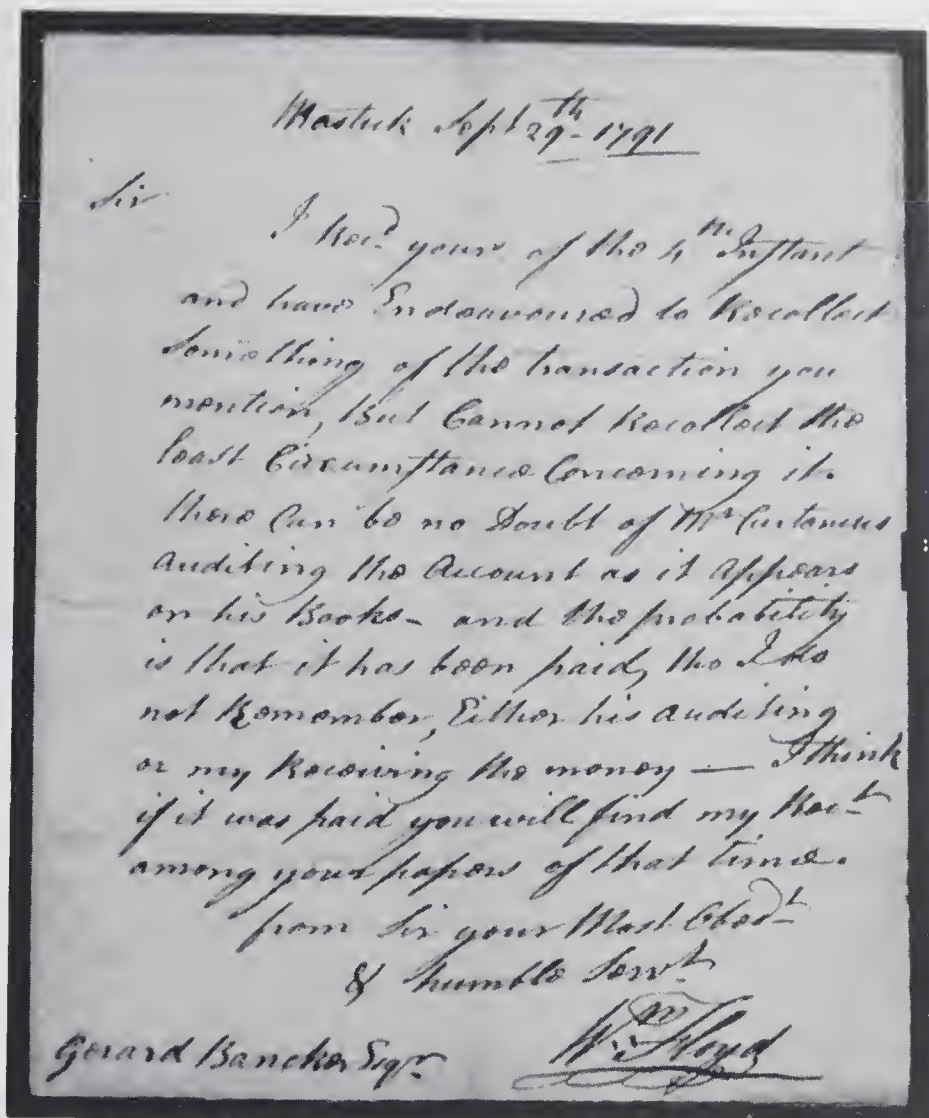 Mastick Sept 29th - 1791
Sir
I Recd yours of the 4th Instant
and have Endeavoured to Recollect
Something of the transaction you
mention, But Cannot Recollect the
least Circumstance Concerning it.
there Can be no Doubt of Mr
Auditing the Account as it Appears
on his Books - and the probability
is that it has been paid, tho I do
not Remember, Either his auditing
or my Receiving the money — I think
if it was paid you will find my Rect
among your papers of that time.
from Sir your Most Obedt
& humble Servt
Wm Floyd
Gerard Bancker Esqr